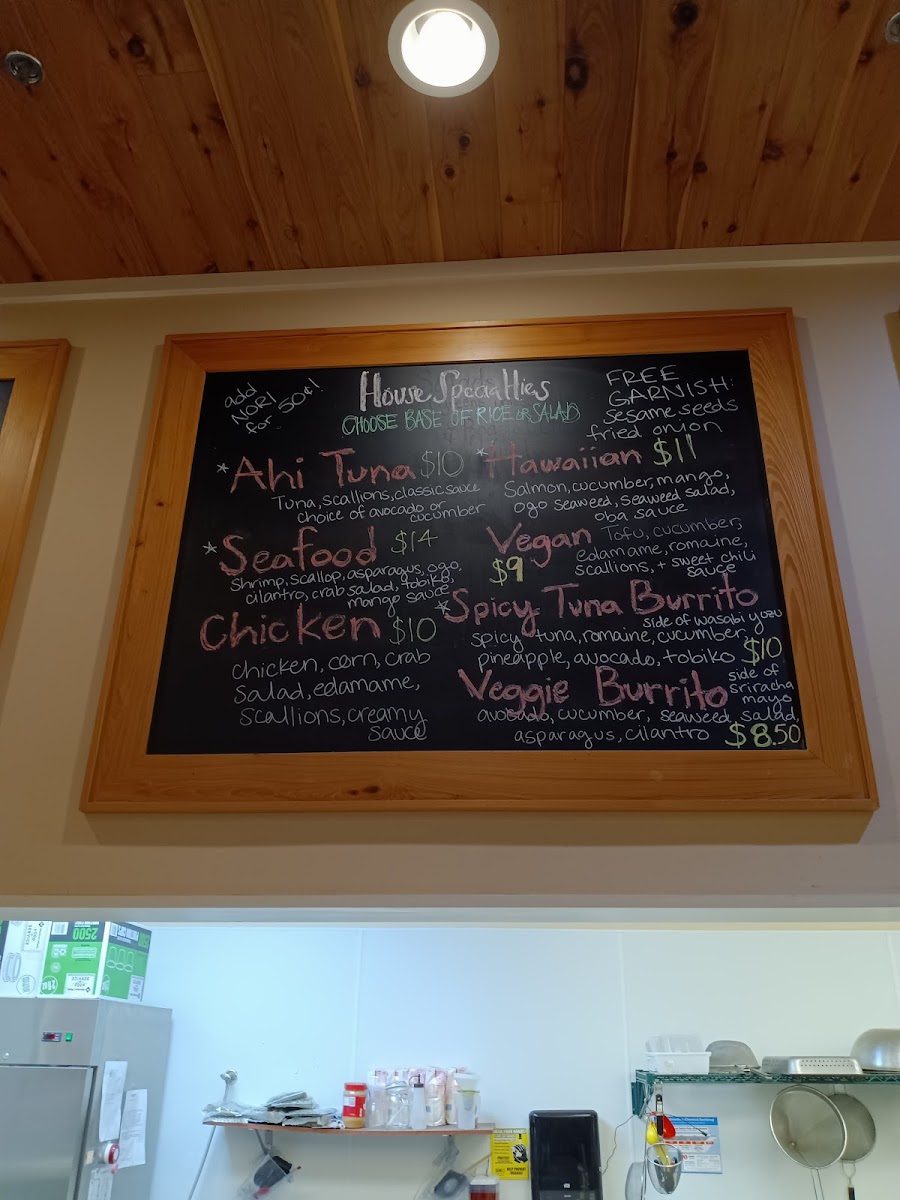 add
NORI
for 50¢!
House Specialties
CHOOSE BASE OF RICE OR SALAD
FREE
GARNISH:
sesame seeds
fried onion
*Ahi Tuna $10
Tuna, scallions, classic sauce
choice of avocado or
cucumber
*Seafood $14
Shrimp, scallop, asparagus, ogo,
cilantro, crab salad, tobiko,
mango sauce
Chicken $10
chicken, corn, crab
salad, edamame,
scallions, creamy
sauce
*Hawaiian $11
Salmon, cucumber, mango,
ogo seaweed, seaweed salad,
oba sauce
Vegan $9
Tofu, cucumber,
edamame, romaine,
scallions, + sweet chili
sauce
*Spicy Tuna Burrito
side of wasabi yuzu
spicy tuna, romaine, cucumber
pineapple, avocado, tobiko $10
Veggie Burrito
side of
sriracha
mayo
avocado, cucumber, seaweed salad,
asparagus, cilantro $8.50
2500